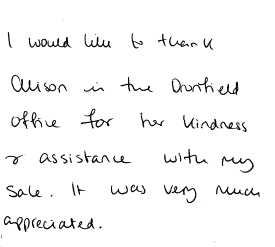 I would like to thank
Alison in the Dronfield
office for her kindness
& assistance with my
sale. It was very much
appreciated.